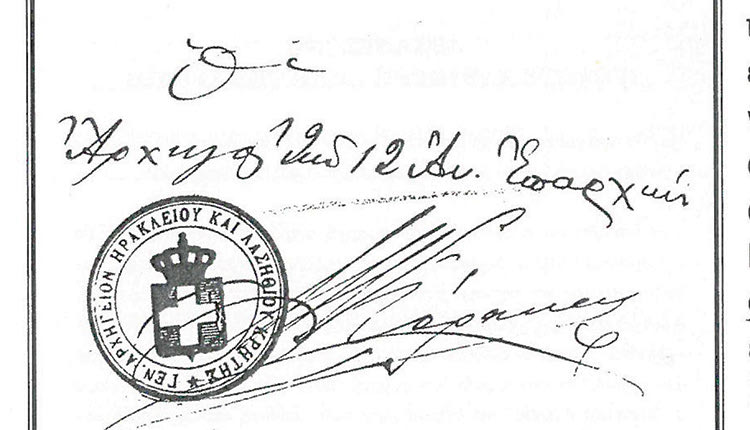 Ὁ
Ἀρχηγὸς τῶν 12 Ἀν. Ἐπαρχιῶν
ΓΕΝ. ΑΡΧΗΓΕΙΟΝ ΗΡΑΚΛΕΙΟΥ ΚΑΙ ΛΑΣΗΘΙΟΥ ΚΡΗΤΗΣ
Κόρακας